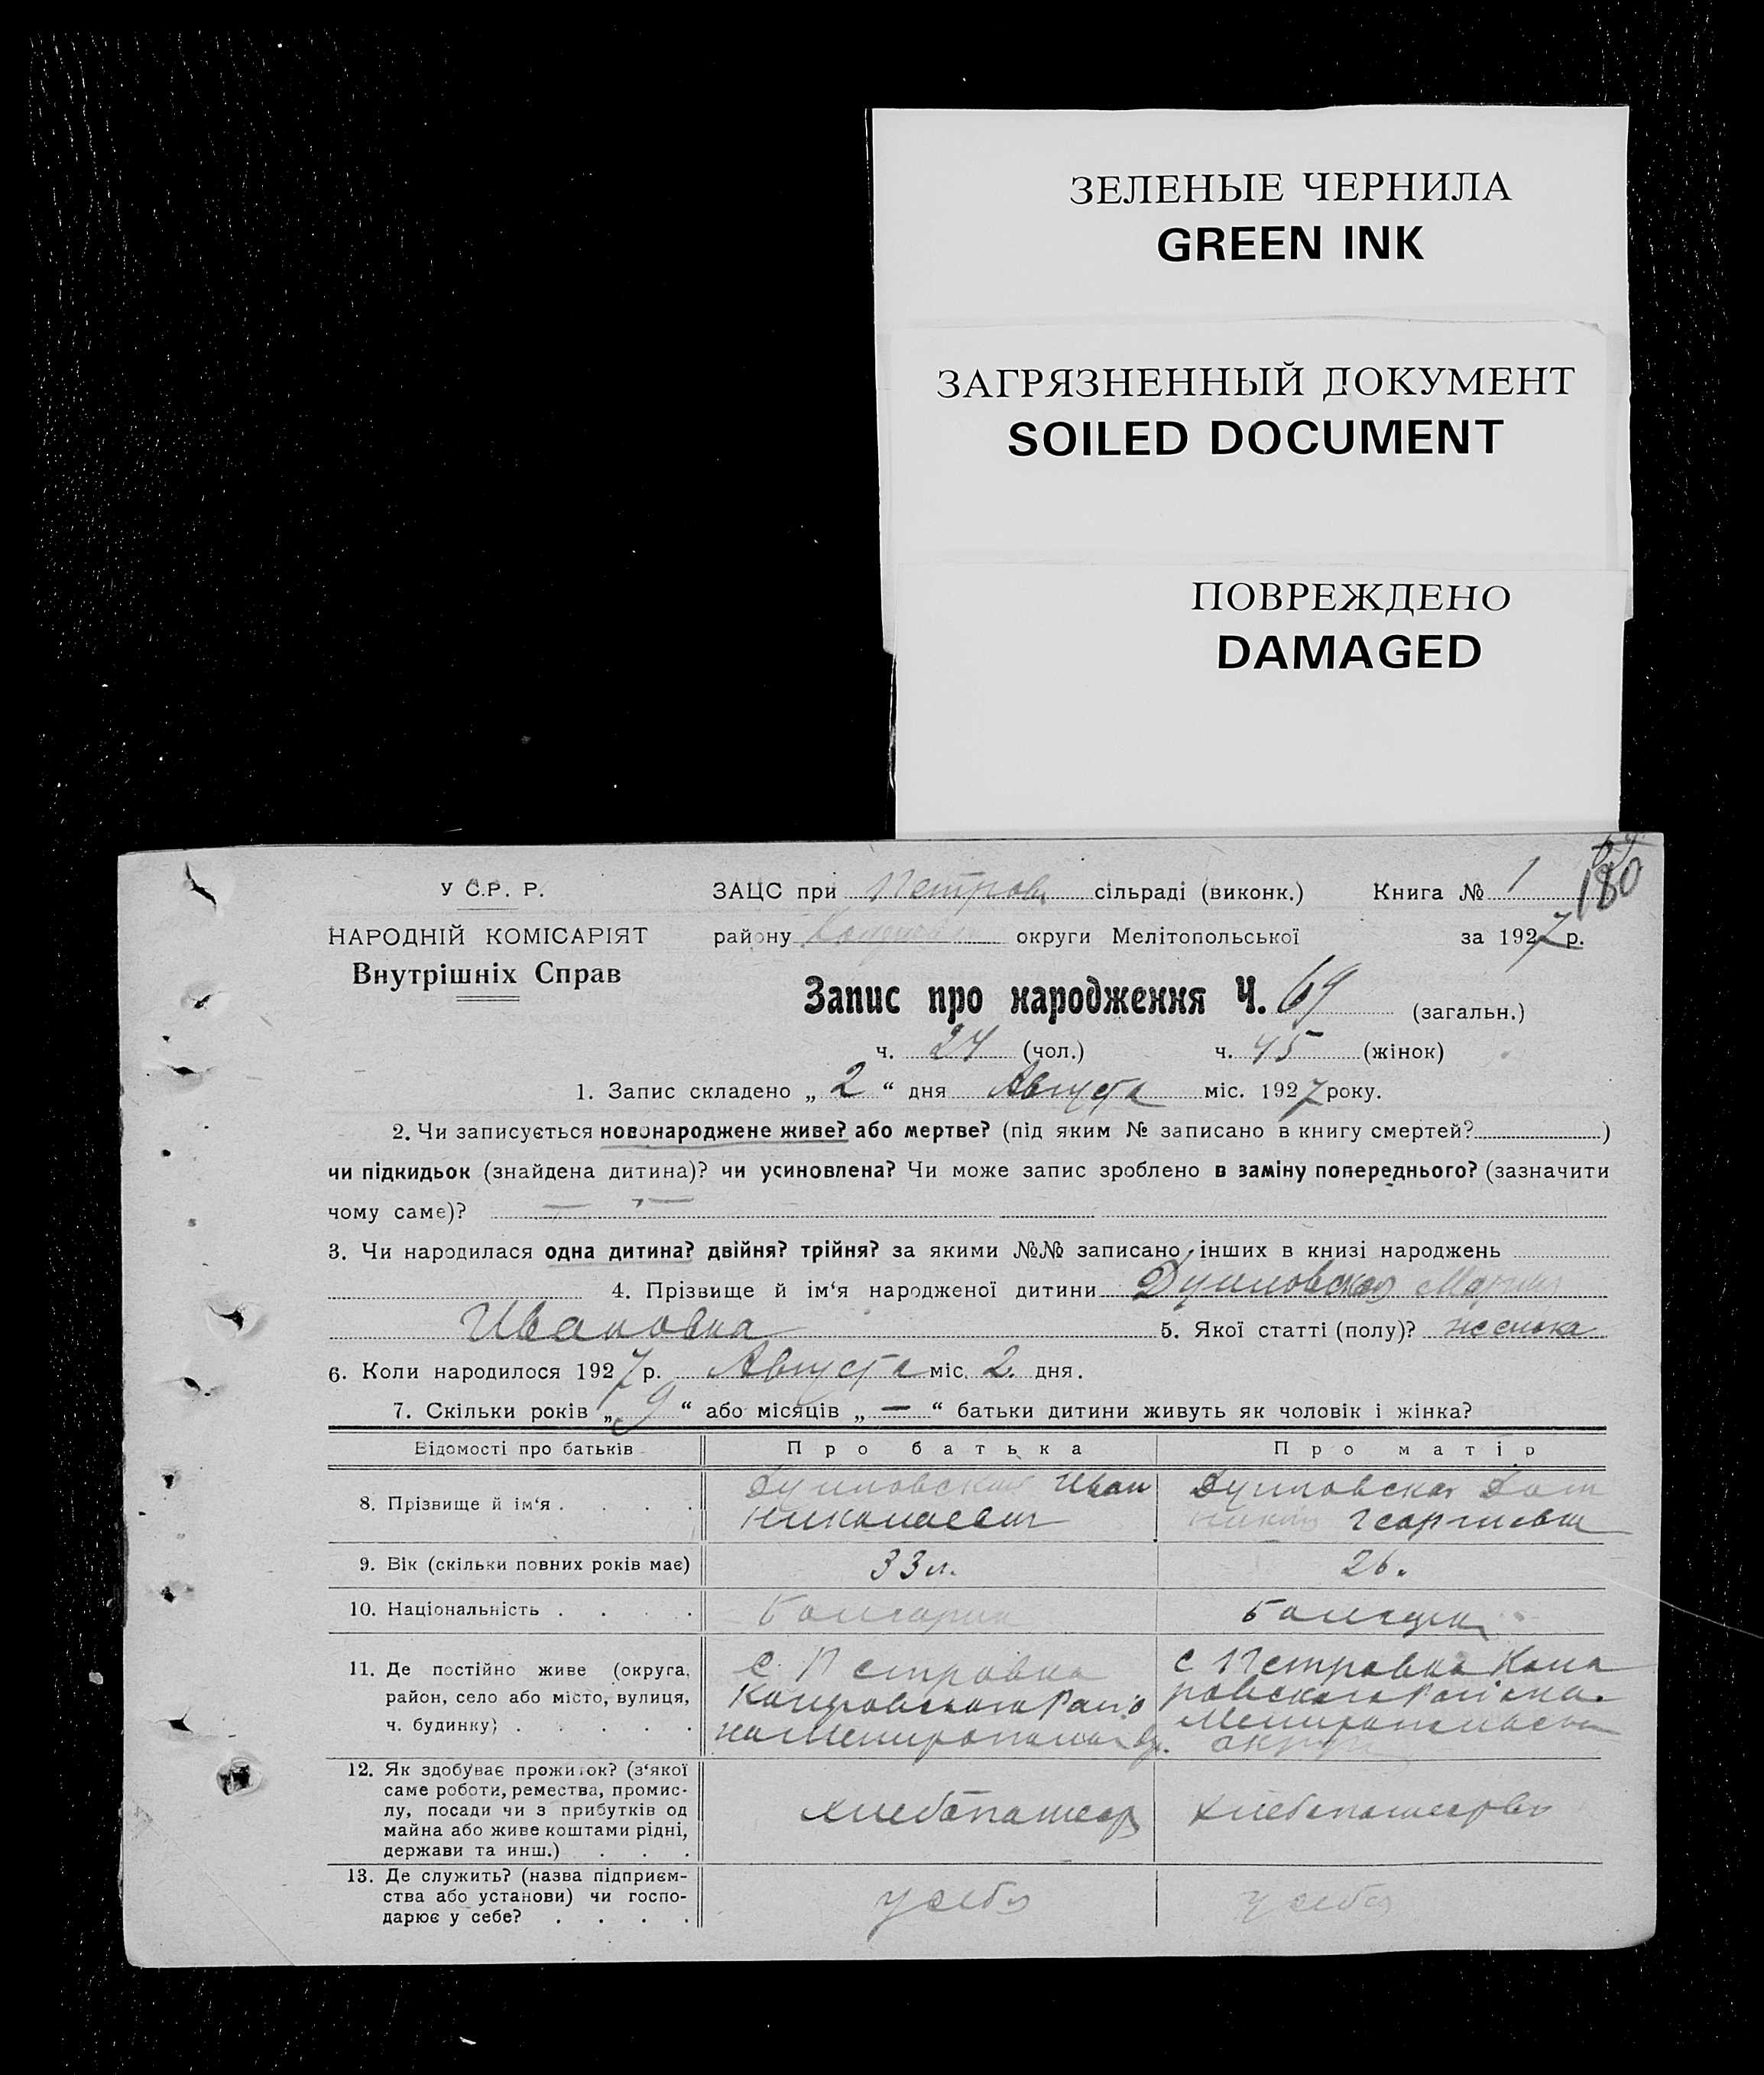 ЗЕЛЕНЫЕ ЧЕРНИЛА
GREEN INK
ЗАГРЯЗНЕННЫЙ ДОКУМЕНТ
SOILED DOCUMENT
ПОВРЕЖДЕНО
DAMAGED
180
У С.Р. Р. ЗАЦС при Петров. сільраді (виконк.) Книга № 1
НАРОДНІЙ КОМІСАРІЯТ району округи Мелітопольської за 1927 р.
Внутрішніх Справ
Запис про народження Ч. 69 (загальн.)
ч. 24 (чол.) ч. 45 (жінок)
1. Запис складено „ 2 “ дня Августа міс. 1927 року.
2. Чи записується новонароджене живе? або мертве? (під яким № записано в книгу смертей? )
чи підкидьок (знайдена дитина)? чи усиновлена? Чи може запис зроблено в заміну попереднього? (зазначити
чому саме)? — —
3. Чи народилася одна дитина? двійня? трійня? за якими №№ записано інших в книзі народжень
4. Прізвище й ім‘я народженої дитини Мария
Ивановна 5. Якої статті (полу)? женска
6. Коли народилося 1927 р. Августа міс. 2. дня.
7. Скільки років „ 9 “ або місяців „ — “ батьки дитини живуть як чоловік і жінка?
Відомості про батьків Про батька Про матір
8. Прізвище й ім‘я . . . . Иван
Николаевич Георгиевна
9. Вік (скільки повних років має) 33 л. 26.
10. Національність . . . . Болгарин Болгарка
11. Де постійно живе (округа, с. Петровка с Петровка
район, село або місто, вулиця,
ч. будинку) . . . . . округи
12. Як здобуває прожиток? (з‘якої
саме роботи, ремества, промис-
лу, посади чи з прибутків од хлебопашеср хлебопашеср
майна або живе коштами рідні,
держави та инш.) . . .
13. Де служить? (назва підприєм-
ства або установи) чи госпо- у себя у себя
дарює у себе? . . . .